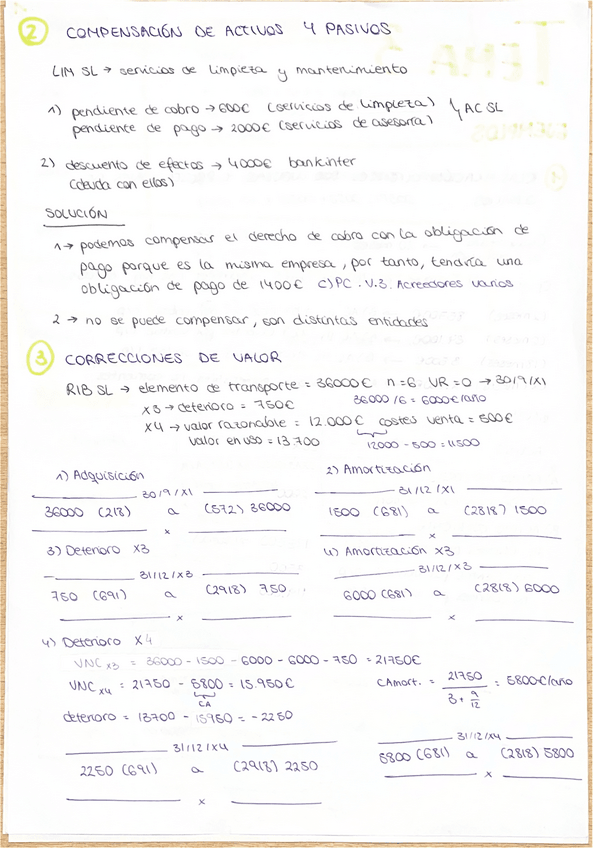 2 COMPENSACIÓN DE ACTIVOS Y PASIVOS
LIM SL → servicios de limpieza y mantenimiento
1) pendiente de cobro → 600€ (servicios de limpieza) AC SL
pendiente de pago → 2000€ (servicios de asesoría)
2) descuento de efectos → 4000€ bankinter
(deuda con ellos)
SOLUCIÓN
1 → podemos compensar el derecho de cobro con la obligación de
pago porque es la misma empresa, por tanto, tendría una
obligación de pago de 1400€ C) PC. V.3. Acreedores varios
2 → no se puede compensar, son distintas entidades
3 CORRECCIONES DE VALOR
RIB SL → elemento de transporte = 36000€ n=6 VR=0 → 30/9/X1
X3 → deterioro = 750€ 36000/6 = 6000€/año
X4 → valor razonable = 12.000€ costes venta = 500€
valor en uso = 13.700 12000 - 500 = 11500
1) Adquisición 2) Amortización
30/9/X1 31/12/X1
36000 (218) a (572) 36000 1500 (681) a (2818) 1500
x x
3) Deterioro X3 4) Amortización X3
31/12/X3 31/12/X3
750 (691) a (2918) 750 6000 (681) a (2818) 6000
x x
4) Deterioro X4
VNC X3 = 36000 - 1500 - 6000 - 6000 - 750 = 21750€
VNC X4 = 21750 - 5800 = 15.950€ CAmort. = 21750 / 3 + 9/12 = 5800€/año
CA
deterioro = 13700 - 15950 = - 2250
31/12/X4 31/12/X4
2250 (691) a (2918) 2250 5800 (681) a (2818) 5800
x x